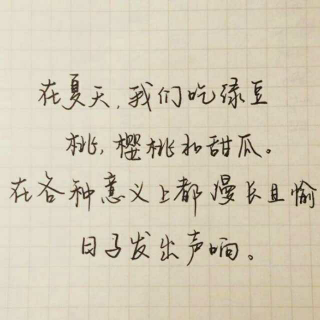 在夏天,我们吃绿豆
桃,樱桃和甜瓜。
在各种意义上都漫长且愉
日子发出声响。